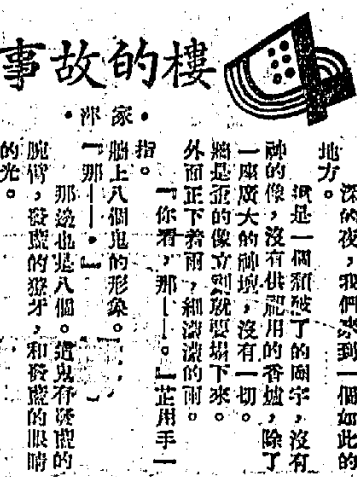 樓的故事
·家邢·
深的夜，我們來到一個如此的
地方。
這是一個頹破了的廟宇，沒有
神的像，沒有供祀用的香爐，除了
一座廣大的神壇，沒有一切。
牆是歪的像立刻就要塌下來。
外面正下着雨，細濛濛的雨。
『你看，那——。』芷用手一
指。
牆上八個鬼的形象。
『那——。』
那邊也是八個。這鬼有發藍的
腕臂，發藍的獠牙，和發藍的眼睛
的光。